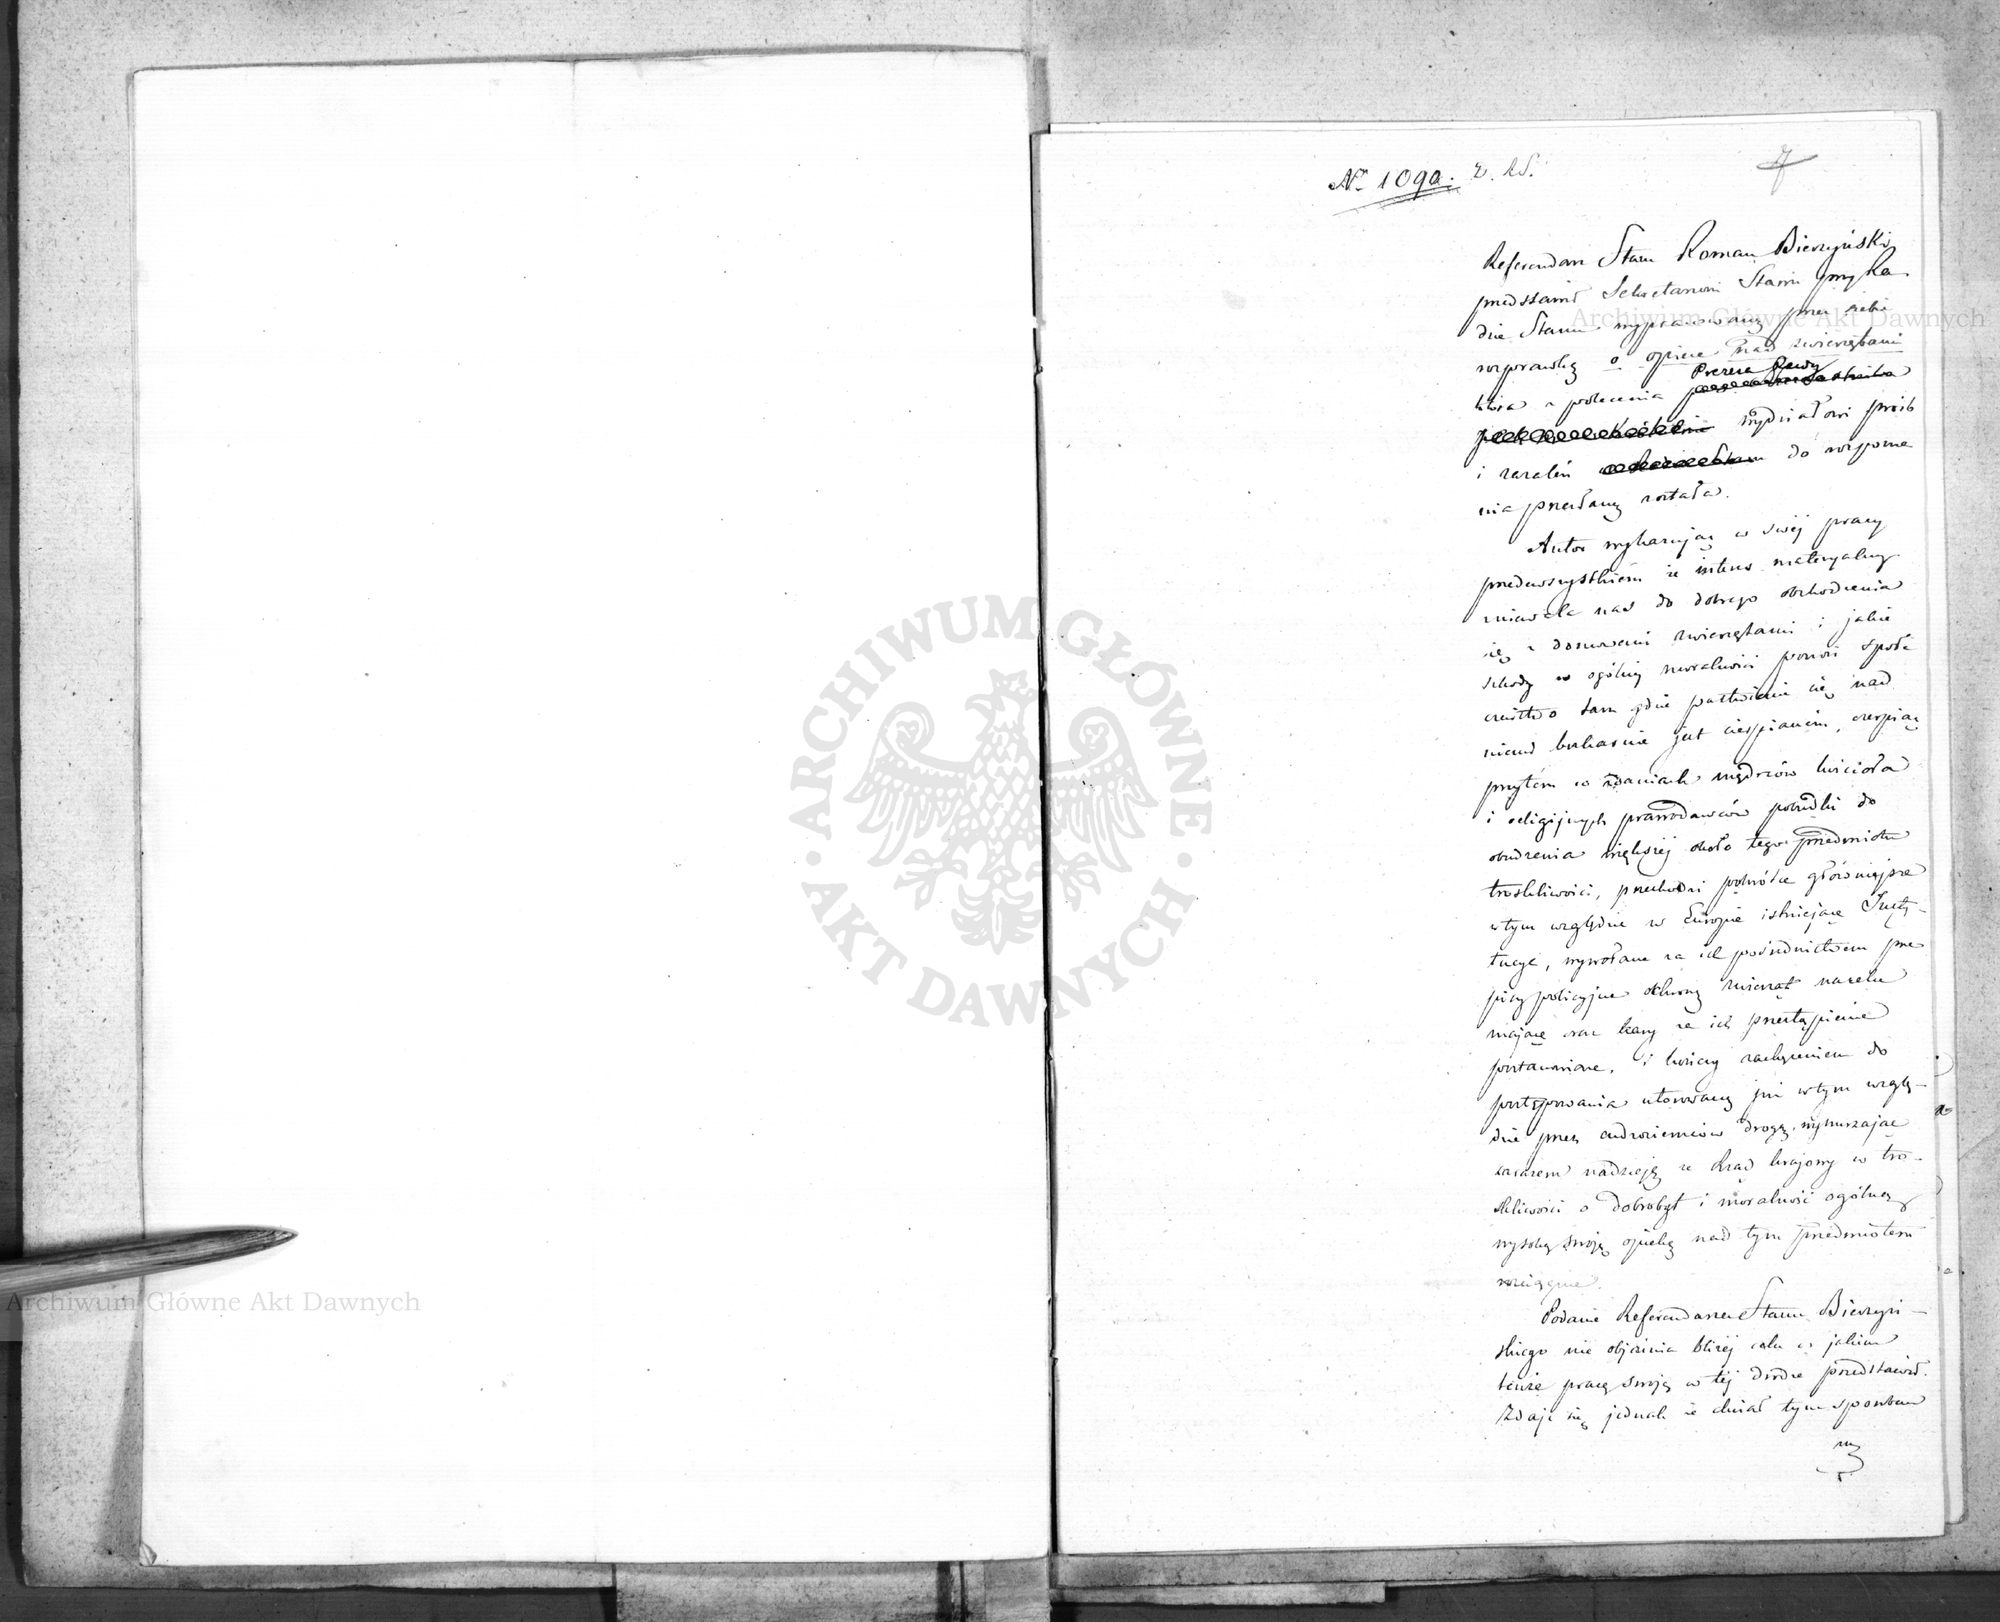 № 1090. 
7
Referendarz Stanu Roman Bierzyński
przedstawił Sekretarzowi Stanu przy Ra
dzie Stanu wypracowaną przez siebie
rozprawkę o opiece nad zwierzętami
która z polecenia Prezesa Rady
wydziałowi próśb
i zażaleń do rozpozna
nia przesłaną została.
Autor wykazując w swéj pracy
przedewszystkiém że interes materyalny
zniewala nas do dobrego obchodzenia
się z domowemi zwierzętami i jakie
szkody w ogólnéj moralności ponosi społe
czeństwo tam gdzie pastwienie się nad
niemi bezkarnie jest cierpianém, czerpiąc
przytém w zdaniach mędrców kościoła
i religijnych prawodawców pobudki do
obudzenia większéj około tego przedmiotu
troskliwości, przechodzi pokrótce główniejsze
w tym względzie w Europie istniejące Insty-
tucye, wywołane za ich pośrednictwem prze
pisy policyjne ochronę zwierząt na celu
mające oraz kary za ich przestąpienie
postanowione, i kończy zachęceniem do
postępowania utorowaną już w tym wzglę-
dzie przez cudzoziemców drogą, wynurzając
zarazem nadzieję że Rząd krajowy w tro-
skliwości o dobrobyt i moralność ogólną
wysoką swoją opiekę nad tym przedmiotem
rozciągnie.
Podanie Referendarza Stanu Bierzyń-
skiego nie objaśnia bliżéj celu w jakim
tenże pracę swoją w téj drodze przedstawił.
Zdaje się jednak że chciał tym sposobem
Archiwum Główne Akt Dawnych
ARCHIWUM GŁÓWNE
AKT DAWNYCH
Archiwum Główne Akt Dawnych